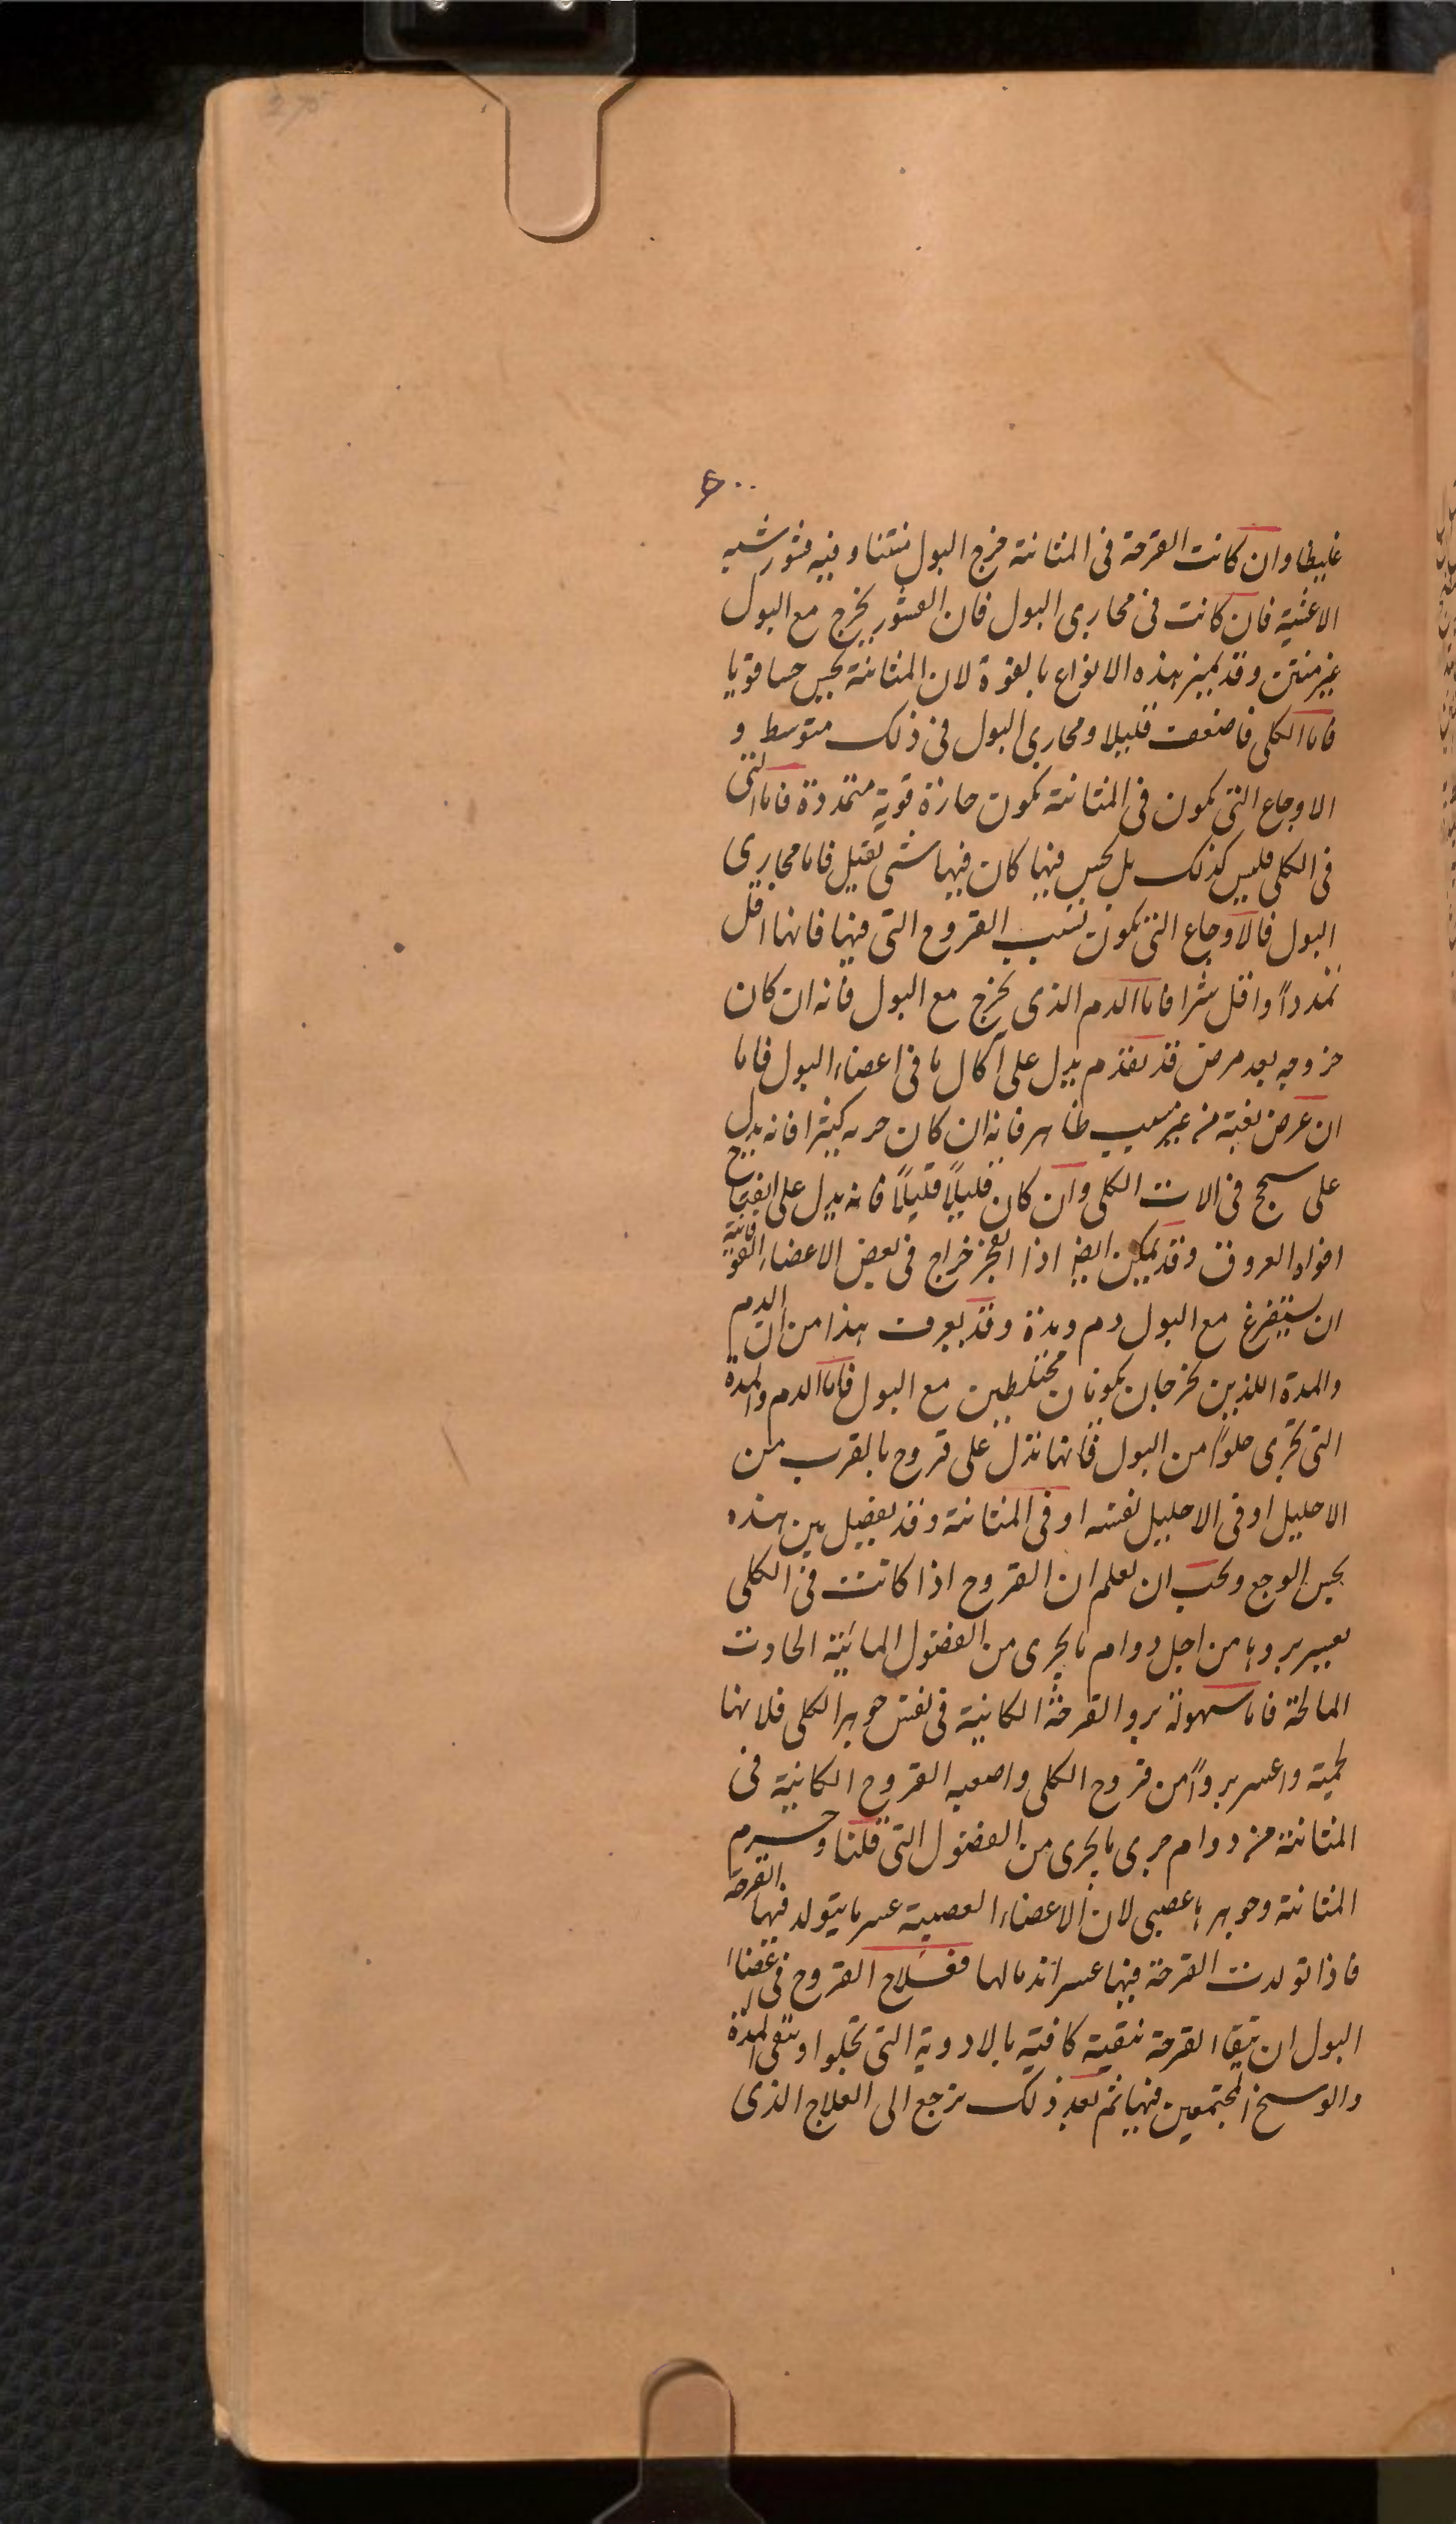 غليظا وان كانت القرحة فى المثانة خرج البول منتنا وفيه قشور شبه
الاغشية فان كانت فى مجارى البول فان القشور يخرج مع البول
غير منتن وقد يميز هذه الانواع بالقوة لان المثانة يحس حسا قويا
فاما الكلى فاضعف قليلا ومجارى البول فى ذلك متوسط و
الاوجاع التى يكون فى المثانة يكون حارة قوية متمددة فاما التى
فى الكلى فليس كذلك بل يحس فيها كان فيها شى ثقيل فاما مجارى
البول فالاوجاع التى يكون بسبب القروح التى فيها فانها اقل
تمدداً واقل شرا فاما الدم الذى يخرج مع البول فانه ان كان
خروجه بعد مرض قد تقدم يدل على آكال ما فى اعضاء البول فاما
ان عرض بغتة من غير سبب ظاهر فانه ان كان كثيرا فانه يدل
على سحج فى الات الكلى وان كان قليلاً قليلاً فانه يدل على
افواه العروق وقد يمكن ايضا اذا انفجر خراج فى بعض الاعضاء الفوقانية
ان يستفرغ مع البول دم ومدة وقد يعرف هذا من ان الدم
والمدة اللذين يخرجان يكونان مختلطين مع البول فاما الدم والمدة
التى تجرى خلواً من البول فانها تدل على قروح بالقرب من
الاحليل او فى الاحليل نفسه او فى المثانة وقد يفصل بين هذه
بحس الوجع ويجب ان يعلم ان القروح اذا كانت فى الكلى
يعسر بروها من اجل دوام ما يجرى من الفضول المائية الحادة
المالحة فاما سهولة برو القرحة الكائنة فى نفس جوهر الكلى فلانها
لحمية واعسر برواً من قروح الكلى واصعبه القروح الكائنة فى
المثانة من دوام جرى ما يجرى من الفضول التى قلنا وجرم
المثانة وجوهرها عصبى لان الاعضاء العصبية عسر ما يتولد فيها القرحة
فاذا تولدت القرحة فيها عسر اندمالها فعلاج القروح فى اعضاء
البول ان ينقا القرحة تنقية كافية بالادوية التى تجلوا وتنقى المدة
والوسخ المجتمعين فيها ثم بعد ذلك يرجع الى العلاج الذى